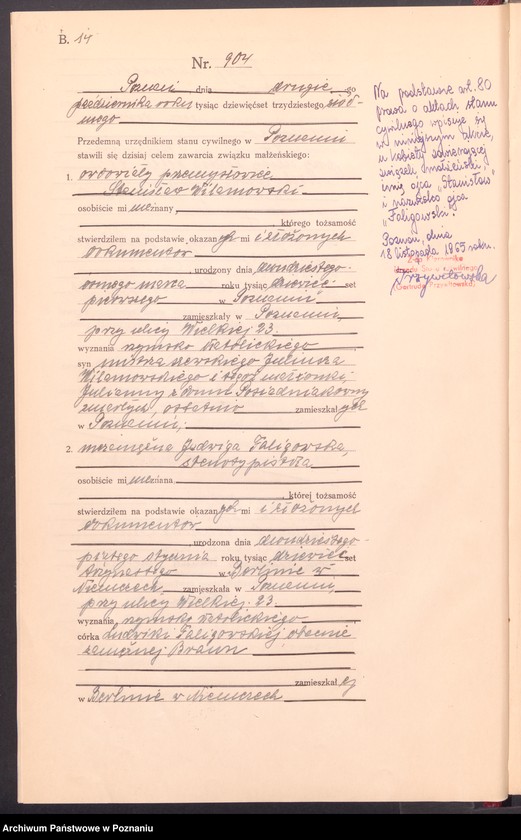 B. 14
Nr. 904
Poznań, dnia drugiego
października roku tysiąc dziewięćset trzydziestego siód-
mego
Przedemną urzędnikiem stanu cywilnego w Poznaniu
stawili się dzisiaj celem zawarcia związku małżeńskiego:
1. owdowiały przemysłowiec
Stanisław Wilamowski
osobiście mi nieznany
którego tożsamość
stwierdziłem na podstawie okazanych mi i złożonych
dokumentów
urodzony dnia dwudziestego-
ósmego marca roku tysiąc dziewięćset
pierwszego w Poznaniu
zamieszkały w Poznaniu,
przy ulicy Wielkiej 23.
wyznania rzymsko katolickiego
syn mistrza szewskiego Juliusza
Wilamowskiego i tegoż małżonki,
Julianny z domu
zmarłych, ostatnio zamieszkałych
w Poznaniu,
2. niezamężna Jadwiga Faligowska,
stenotypistka
osobiście mi nieznana
której tożsamość
stwierdziłem na podstawie okazanych mi i złożonych
dokumentów
urodzona dnia dwudziestego-
piątego stycznia roku tysiąc dziewięćset
w Berlinie w
Niemczech zamieszkała w Poznaniu,
przy ulicy Wielkiej 23.
wyznania rzymsko katolickiego
córka Ludwiki Faligowskiej, obecnie
zamężnej Braun
zamieszkałej
w Berlinie w Niemczech
Na podstawie art. 80
prawa o aktach stanu
cywilnego wpisuje się
w niniejszym akcie,
u kobiety zawierającej
związek małżeński,
imię ojca „Stanisław"
i nazwisko ojca
„Faligowski".
Poznań, dnia
18 listopada 1965 roku.
Z-ca Kierownika
Urzędu Stanu Cywilnego
Przywitowska
(Gertruda Przywitowska)
Archiwum Państwowe w Poznaniu